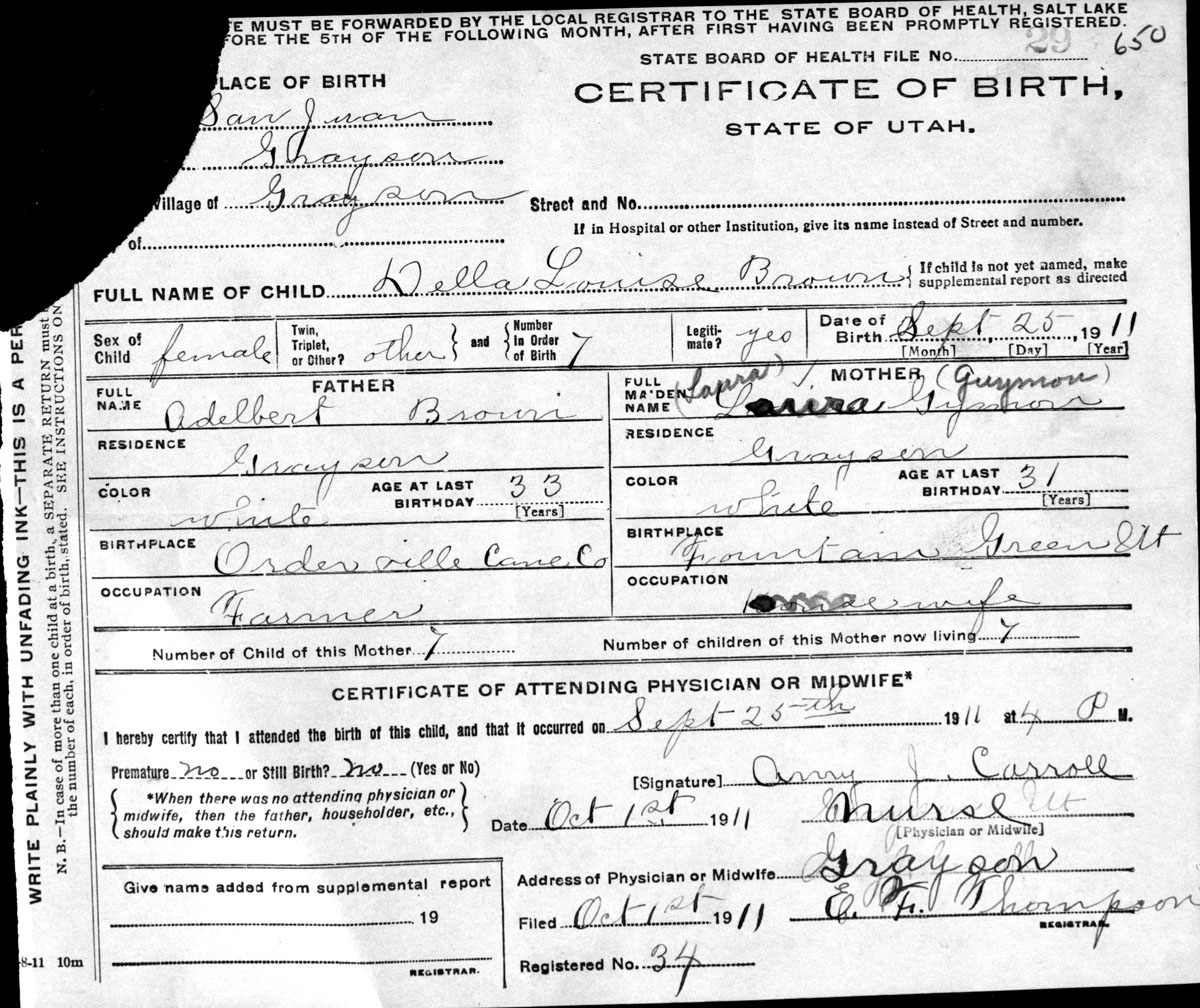 E MUST BE FORWARDED BY THE LOCAL REGISTRAR TO THE STATE BOARD OF HEALTH, SALT LAKE
FORE THE 5TH OF THE FOLLOWING MONTH, AFTER FIRST HAVING BEEN PROMPTLY REGISTERED.
29 650
STATE BOARD OF HEALTH FILE No.
LACE OF BIRTH
CERTIFICATE OF BIRTH,
STATE OF UTAH.
San Juan
Grayson
Village of Grayson Street and No.
If in Hospital or other Institution, give its name instead of Street and number.
of
FULL NAME OF CHILD Della Louise Brown { If child is not yet named, make supplemental report as directed
Sex of Child female Twin, Triplet, or Other? other } and { Number in Order of Birth 7 Legiti- mate? yes Date of Birth Sept 25, 1911
[Month] [Day] [Year]
FATHER
FULL NAME Adelbert Brown
RESIDENCE Grayson
COLOR white AGE AT LAST BIRTHDAY 33 [Years]
BIRTHPLACE Orderville Cane Co
OCCUPATION Farmer
MOTHER (Laura) (Guymon)
FULL MAIDEN NAME Laura Gymon
RESIDENCE Grayson
COLOR white AGE AT LAST BIRTHDAY 31 [Years]
BIRTHPLACE Fountain Green Ut
OCCUPATION Housewife
Number of Child of this Mother 7 Number of children of this Mother now living 7
CERTIFICATE OF ATTENDING PHYSICIAN OR MIDWIFE*
I hereby certify that I attended the birth of this child, and that it occurred on Sept 25th 1911 at 4 P M.
Premature no or Still Birth? no (Yes or No)
[Signature] Anny J. Carroll
{ *When there was no attending physician or }
midwife, then the father, householder, etc.,
should make this return.
Date Oct 1st 1911 Nurse
[Physician or Midwife]
Address of Physician or Midwife Grayson
Filed Oct 1st 1911 E. F. Thompson
REGISTRAR.
Registered No. 34
Give name added from supplemental report
19
REGISTRAR.
8-11 10m
WRITE PLAINLY WITH UNFADING INK—THIS IS A PER
N. B.—In case of more than one child at a birth, a SEPARATE RETURN must
the number of each, in order of birth, stated. SEE INSTRUCTIONS ON